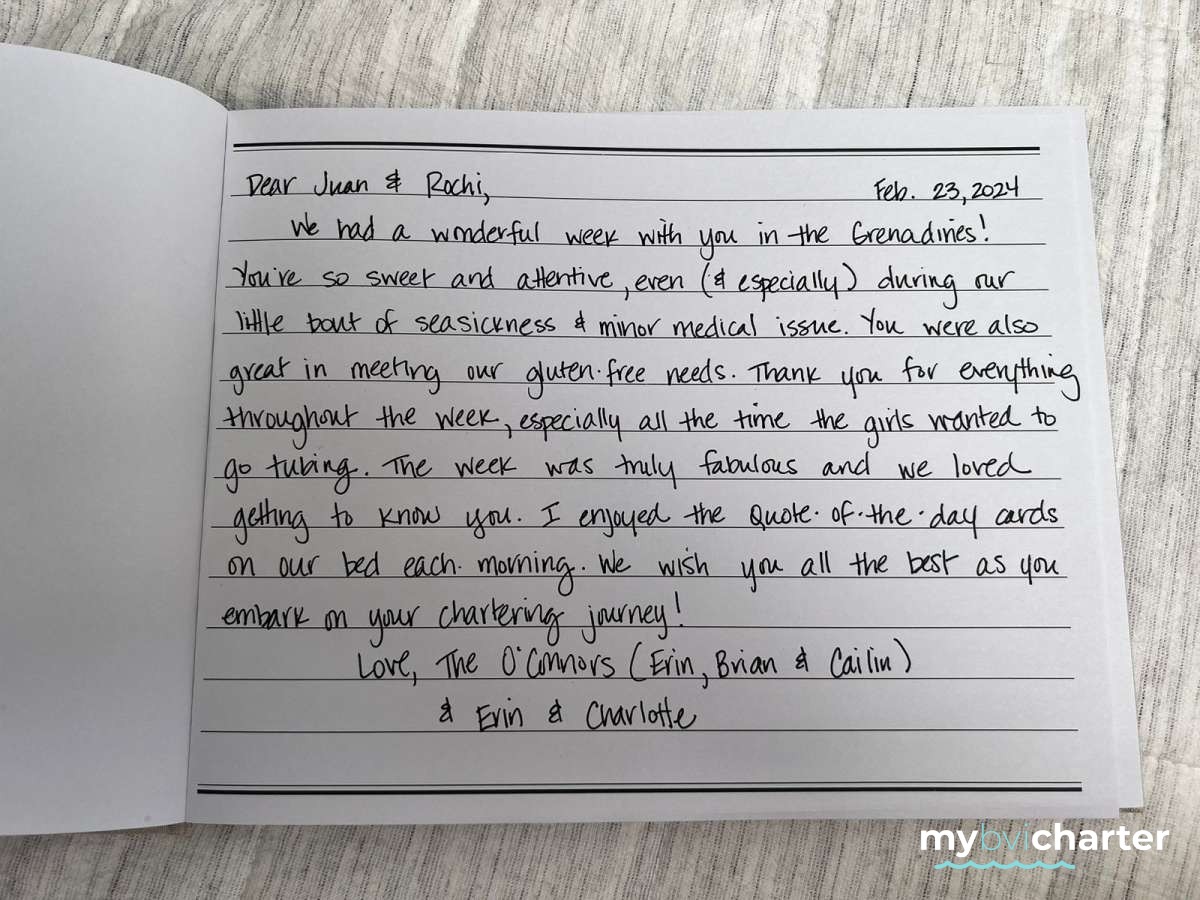 Dear Juan & Rochi, Feb. 23, 2024
We had a wonderful week with you in the Grenadines!
You're so sweet and attentive, even (& especially) during our
little bout of seasickness & minor medical issue. You were also
great in meeting our gluten-free needs. Thank you for everything
throughout the week, especially all the time the girls wanted to
go tubing. The week was truly fabulous and we loved
getting to know you. I enjoyed the Quote-of-the-day cards
on our bed each morning. We wish you all the best as you
embark on your chartering journey!
Love, The O'Connors (Erin, Brian & Cailin)
& Erin & Charlotte
mybvicharter